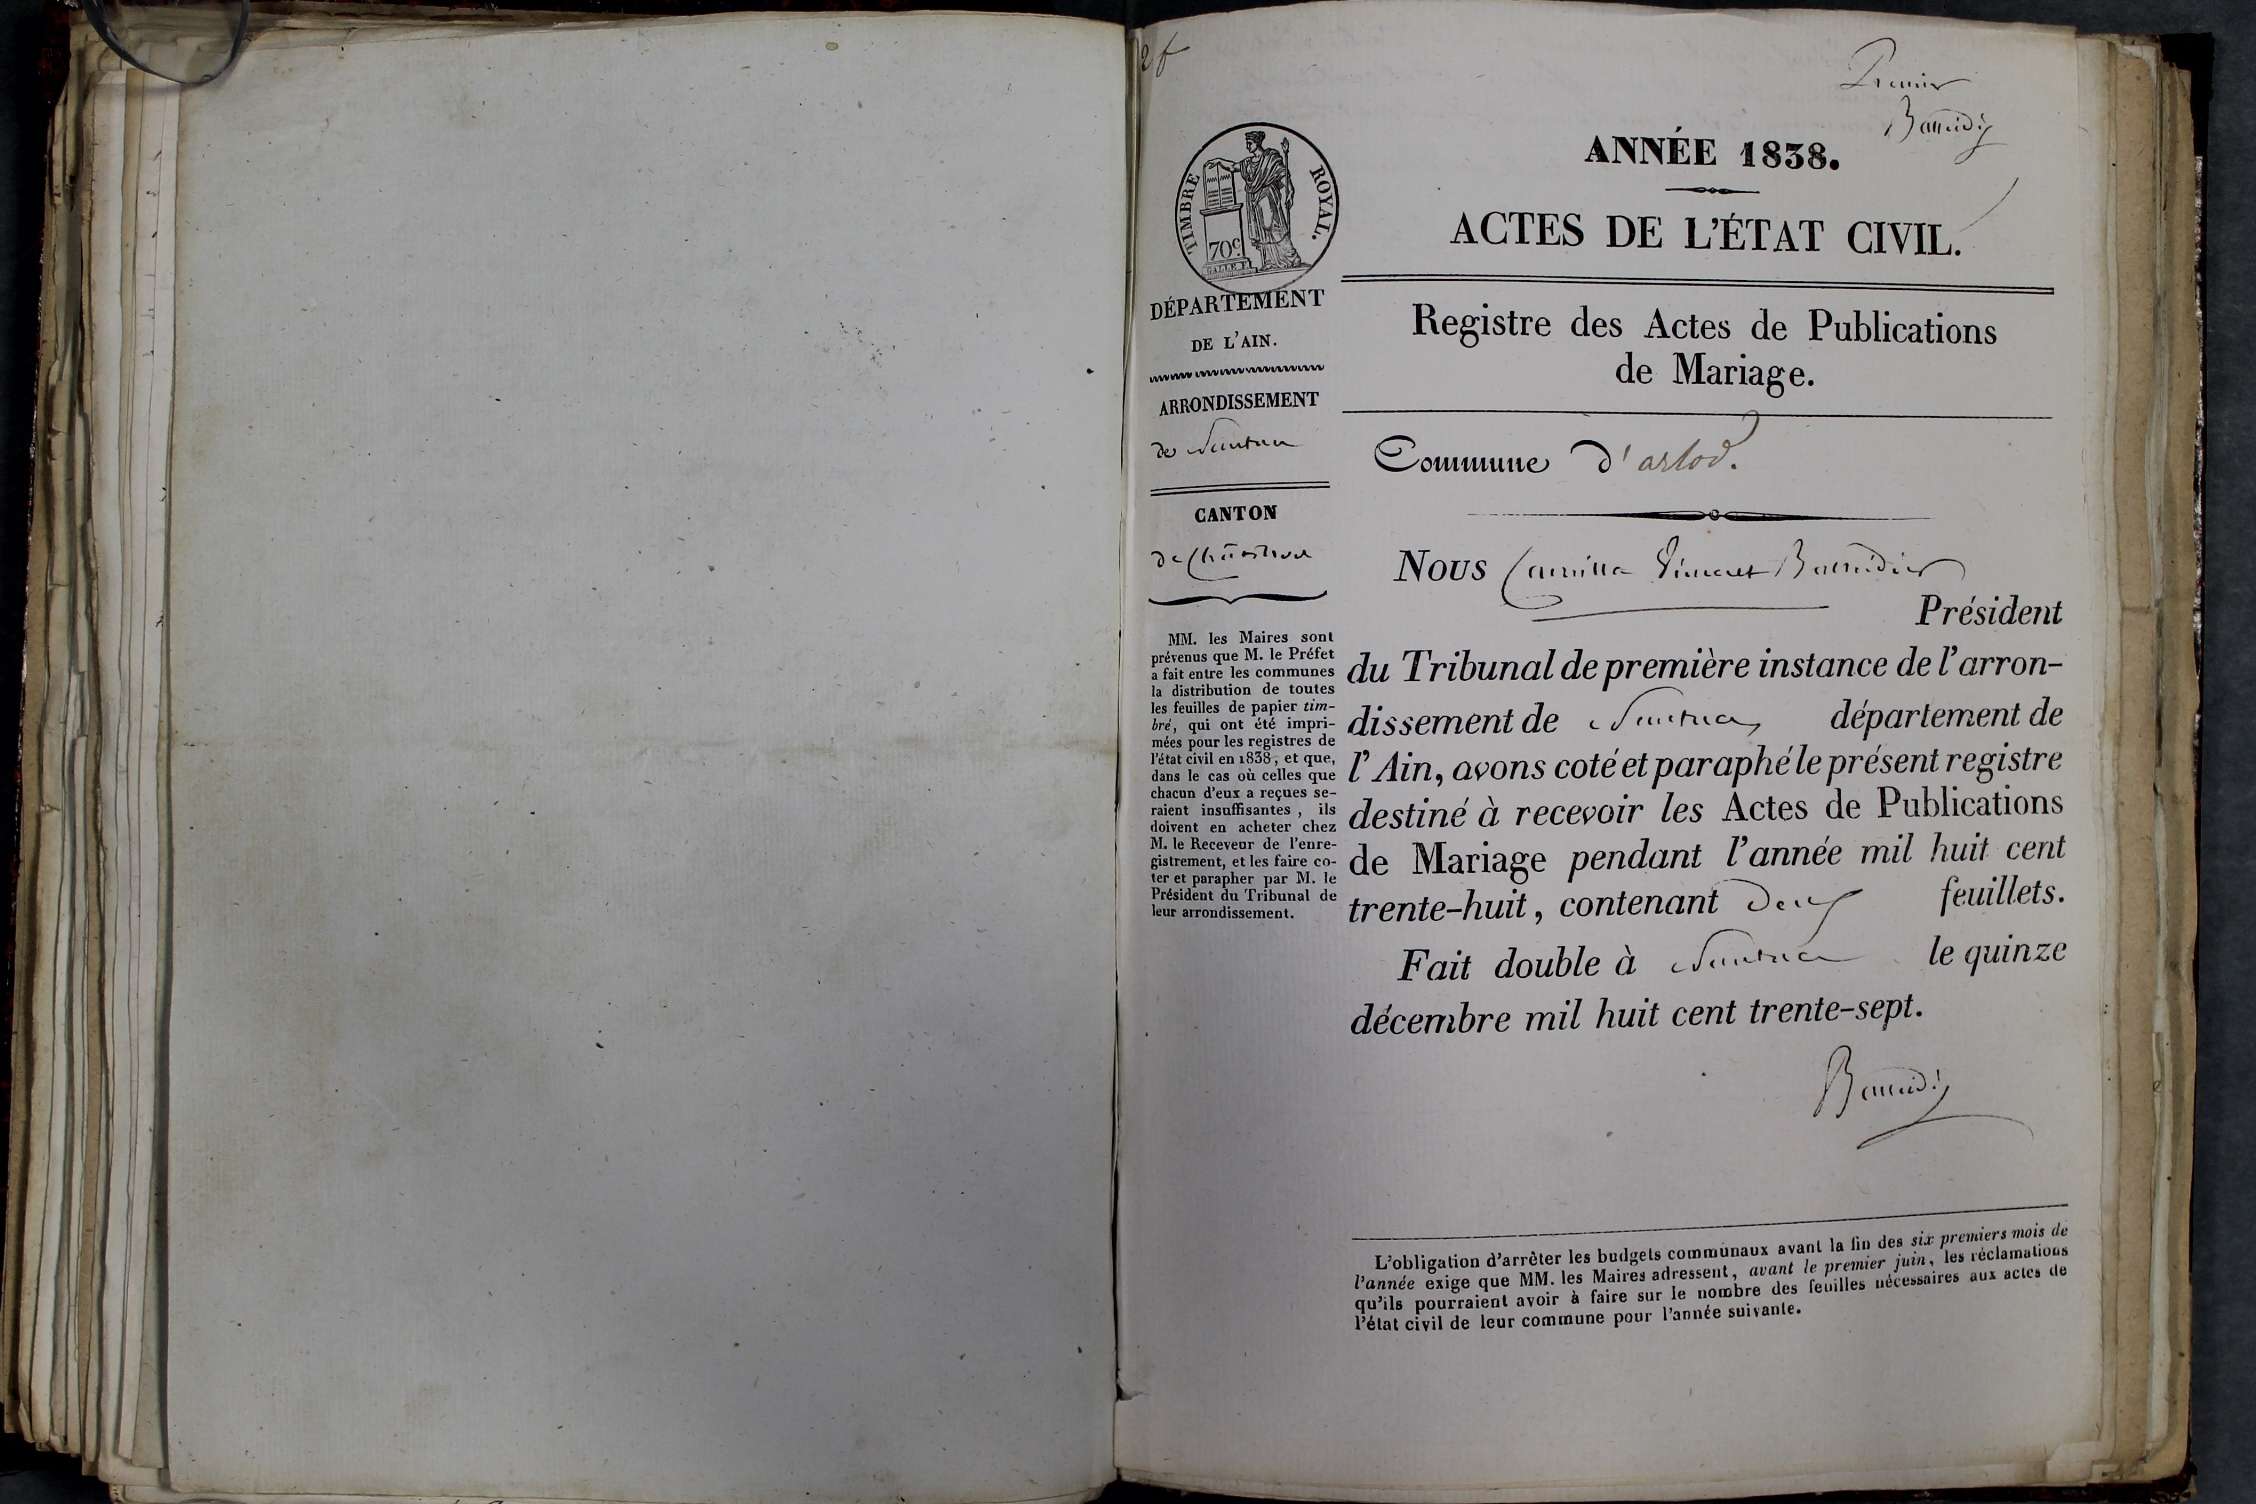 2 f
Premier
Baudi
ANNÉE 1838.
ACTES DE L'ÉTAT CIVIL.
TIMBRE ROYAL.
70c.
DÉPARTEMENT
DE L'AIN.
ARRONDISSEMENT
de Nantua
CANTON
de Châtillon
MM. les Maires sont
prévenus que M. le Préfet
a fait entre les communes
la distribution de toutes
les feuilles de papier tim-
bré, qui ont été impri-
mées pour les registres de
l'état civil en 1838, et que,
dans le cas où celles que
chacun d'eux a reçues se-
raient insuffisantes, ils
doivent en acheter chez
M. le Receveur de l'enre-
gistrement, et les faire co-
ter et parapher par M. le
Président du Tribunal de
leur arrondissement.
Registre des Actes de Publications
de Mariage.
Commune d'arlod.
Nous Camille
Président
du Tribunal de première instance de l'arron-
dissement de Nantua, département de
l'Ain, avons coté et paraphé le présent registre
destiné à recevoir les Actes de Publications
de Mariage pendant l'année mil huit cent
trente-huit, contenant deux feuillets.
Fait double à Nantua le quinze
décembre mil huit cent trente-sept.
L'obligation d'arrêter les budgets communaux avant la fin des six premiers mois de
l'année exige que MM. les Maires adressent, avant le premier juin, les réclamations
qu'ils pourraient avoir à faire sur le nombre des feuilles nécessaires aux actes de
l'état civil de leur commune pour l'année suivante.